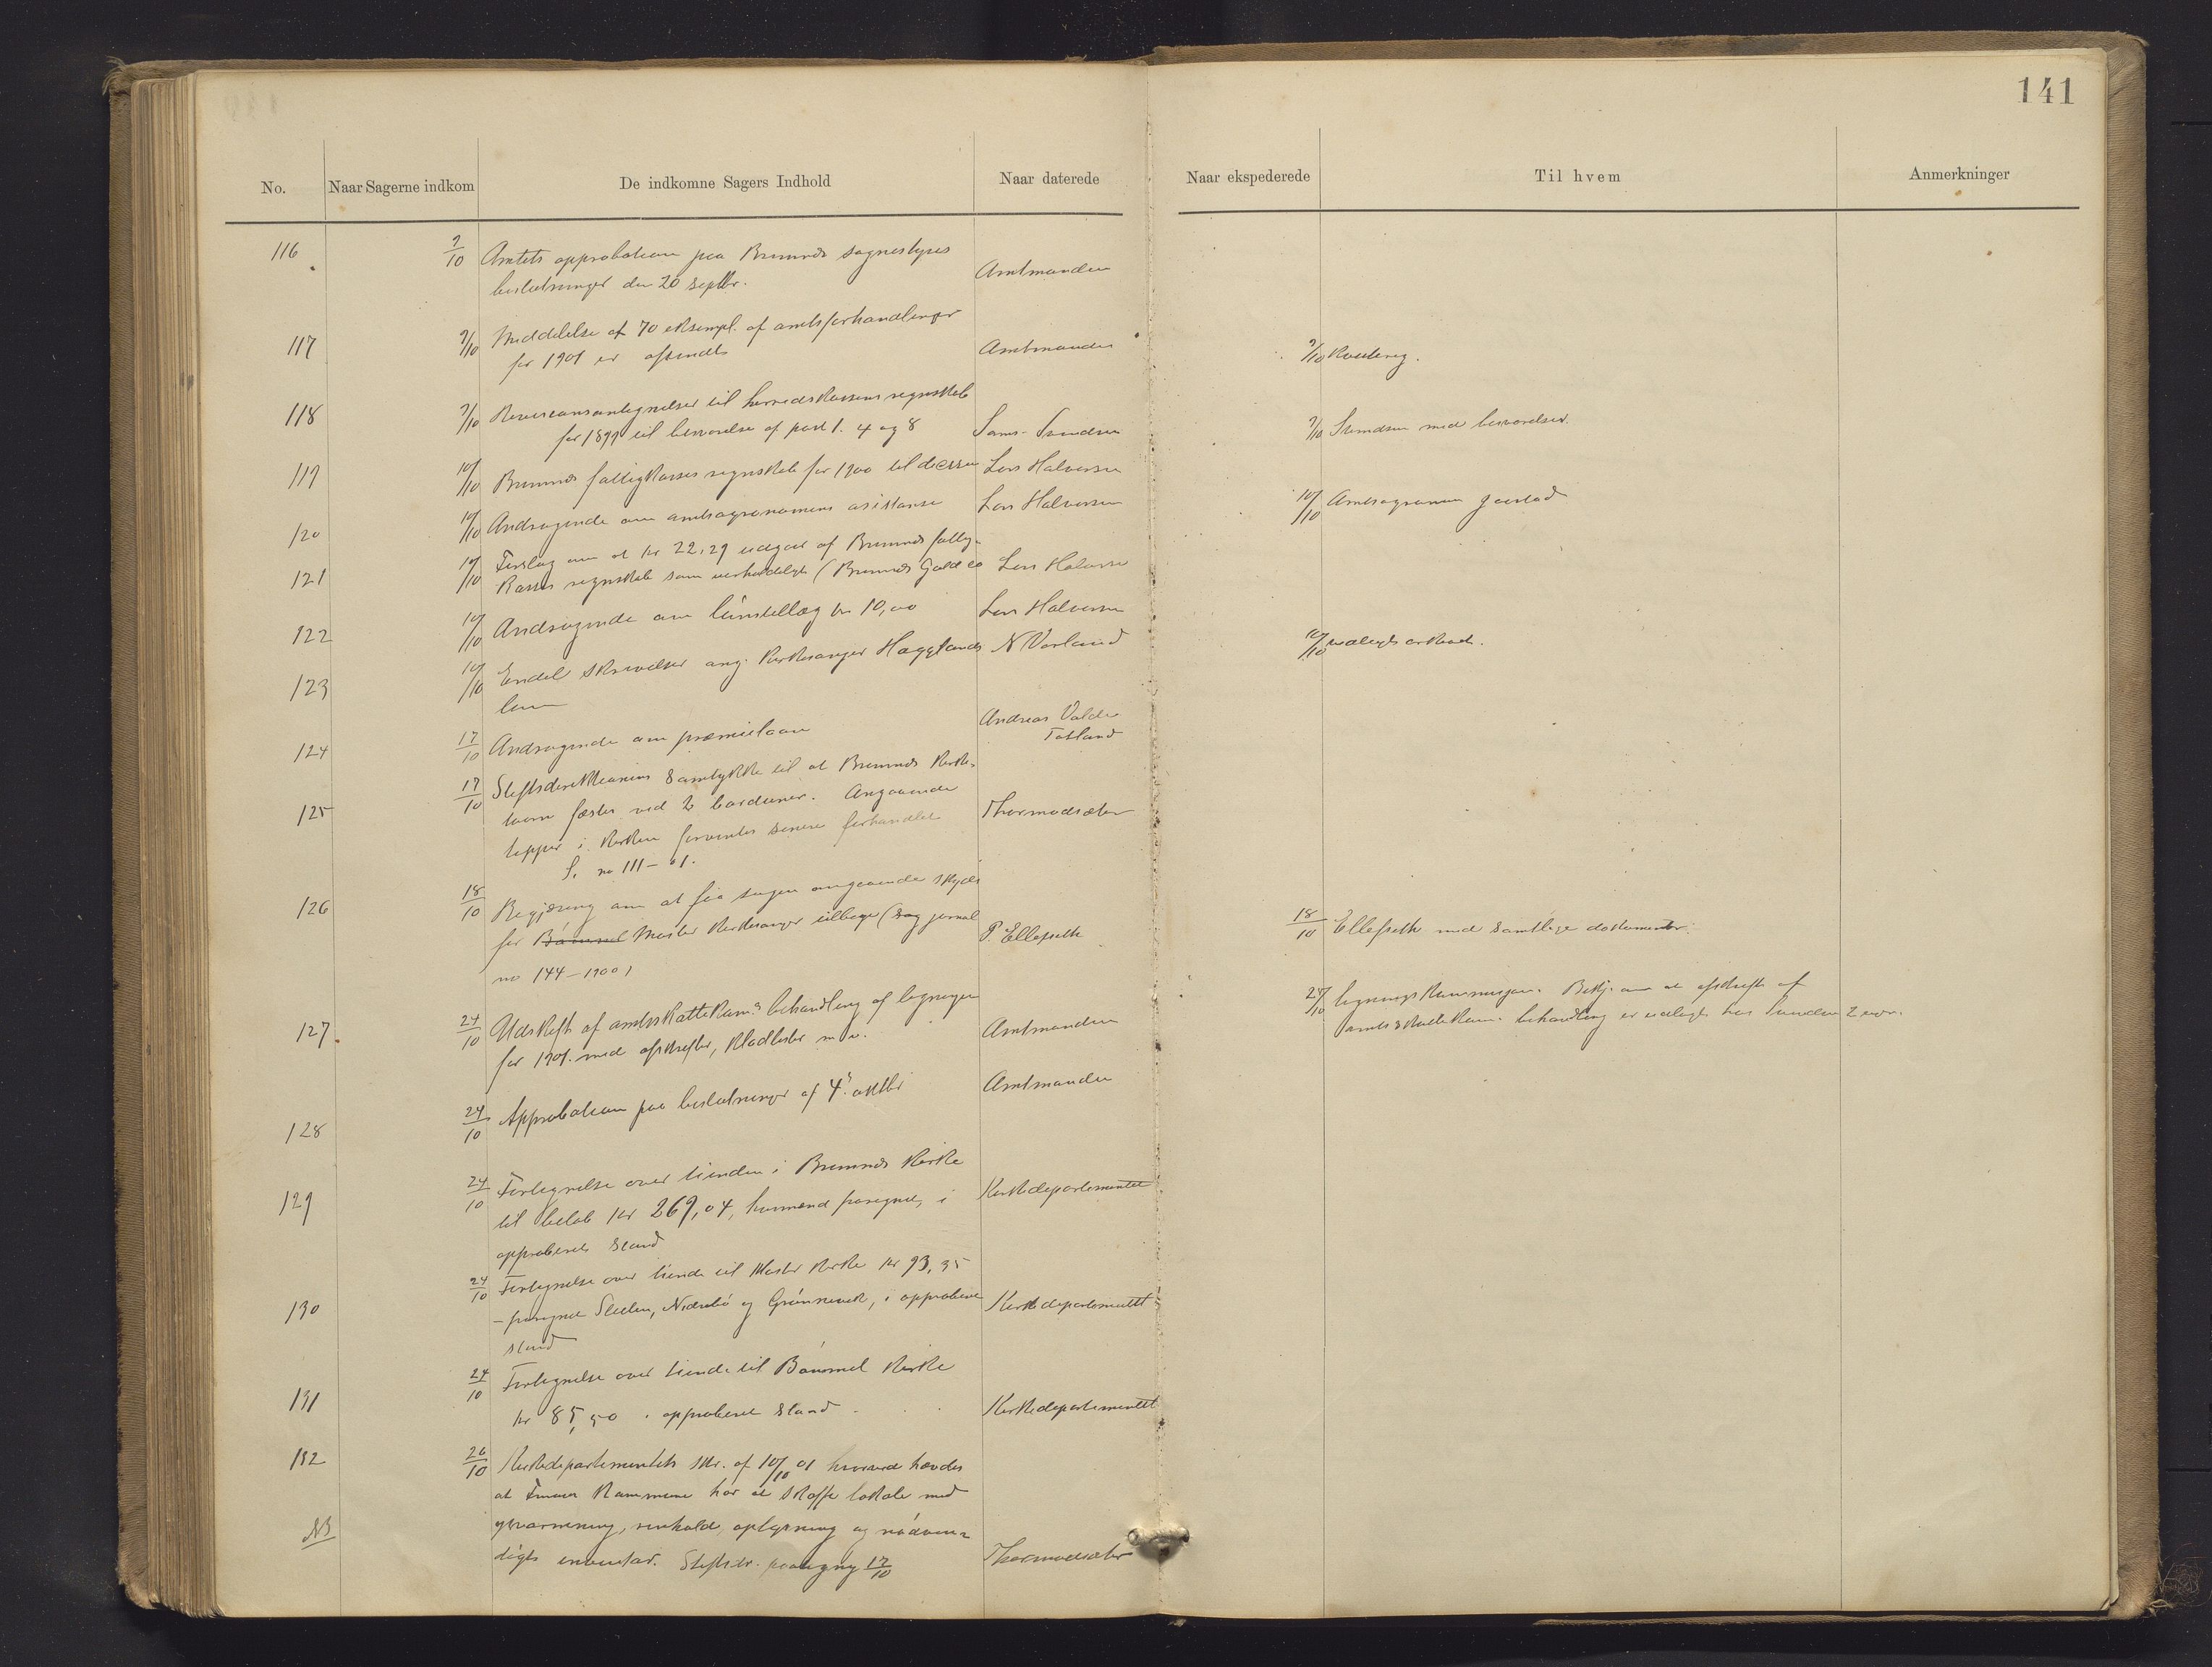 141
No. Naar Sagerne indkom De indkomne Sagers Indhold Naar daterede Naar ekspederede Til hvem Anmerkninger
116 9/10 Amtets approbation paa Bremnes sognestyres
beslutninger den 20 septbr. Amtmanden
117 9/10 Meddelelse af 70 eksempl. af amtsforhandlinger
for 1901 er afsendt Amtmanden 9/10 Kvittering.
118 9/10 Revisionsantegnelser til herredskassens regnskab
for 1899 til besvarelse af post 1. 4 og 8 Sams. Svendsen 9/10 Svendsen med besvarelser.
119 10/10 Bremnes fattigkasses regnskab for 1900 til decision Lars Halvorsen
120 10/10 Andragende om amtsagronomens asistanse Lars Halvorsen 10/10 Amtsagronom Gjerstad
121 10/10 Forslag om at kr 22,29 udgaar af Bremnes fattig-
kasses regnskab som uerholdeligt (Bremnes Gold co Lars Halvorsen
122 10/10 Andragende om lønstillæg kr 10,00 Lars Halvorsen
123 10/10 Endel skrivelser ang. kirkesanger Hagglands N Vorland 10/10
løn
124 17/10 Andragende om præmielaan Andreas Valde
125 17/10 Stiftsdirektionens samtykke til at Bremnes kirke-
taarn fæstes ved 2 barduner. Angaaende
tepper i kirken forventes senere forhandlet Thormodsæter
S. no 111-01.
126 18/10 Begjæring om at faa sagen angaaende skyds
for Bømmel Moster kirkesanger tilbage (sag jurnal P. Ellefseth 18/10 Ellefseth med samtlige dokumenter.
no 144-1900)
127 24/10 Udskrift af amtsskattekom.s behandling af ligningen
for 1901 med afskrifter, kladlister m v. Amtmanden 24/10 ligningskommisjon. Bekj. om at afskrift af
amtsskattekom. behandling er udlagt hos 2 expr.
128 24/10 Approbation paa beslutninger af 4' oktbr Amtmanden
129 24/10 Fortegnelse over tienden i Bremnes kirke
til beløb kr 269,04, hermed paregnet, i Kirkedepartementet
approberet stand
130 24/10 Fortegnelse over tiende til Moster kirke kr 93,35
- paregnet Sletten, Nedrebø og Grønnevik, i approberet Kirkedepartementet
stand
131 24/10 Fortegnelse over tiende til Bømmel kirke
kr 85,50 i approberet stand Kirkedepartementet
132 26/10 Kirkedepartementets skr. af 10/10 01 hvorved hævdes
at Finnaas kommune har at skaffe lokale med
NB opvarmning, renhold, oplysning og nødven-
digt inventar. Stiftsdir. paategning 17/10 Thormodsæter